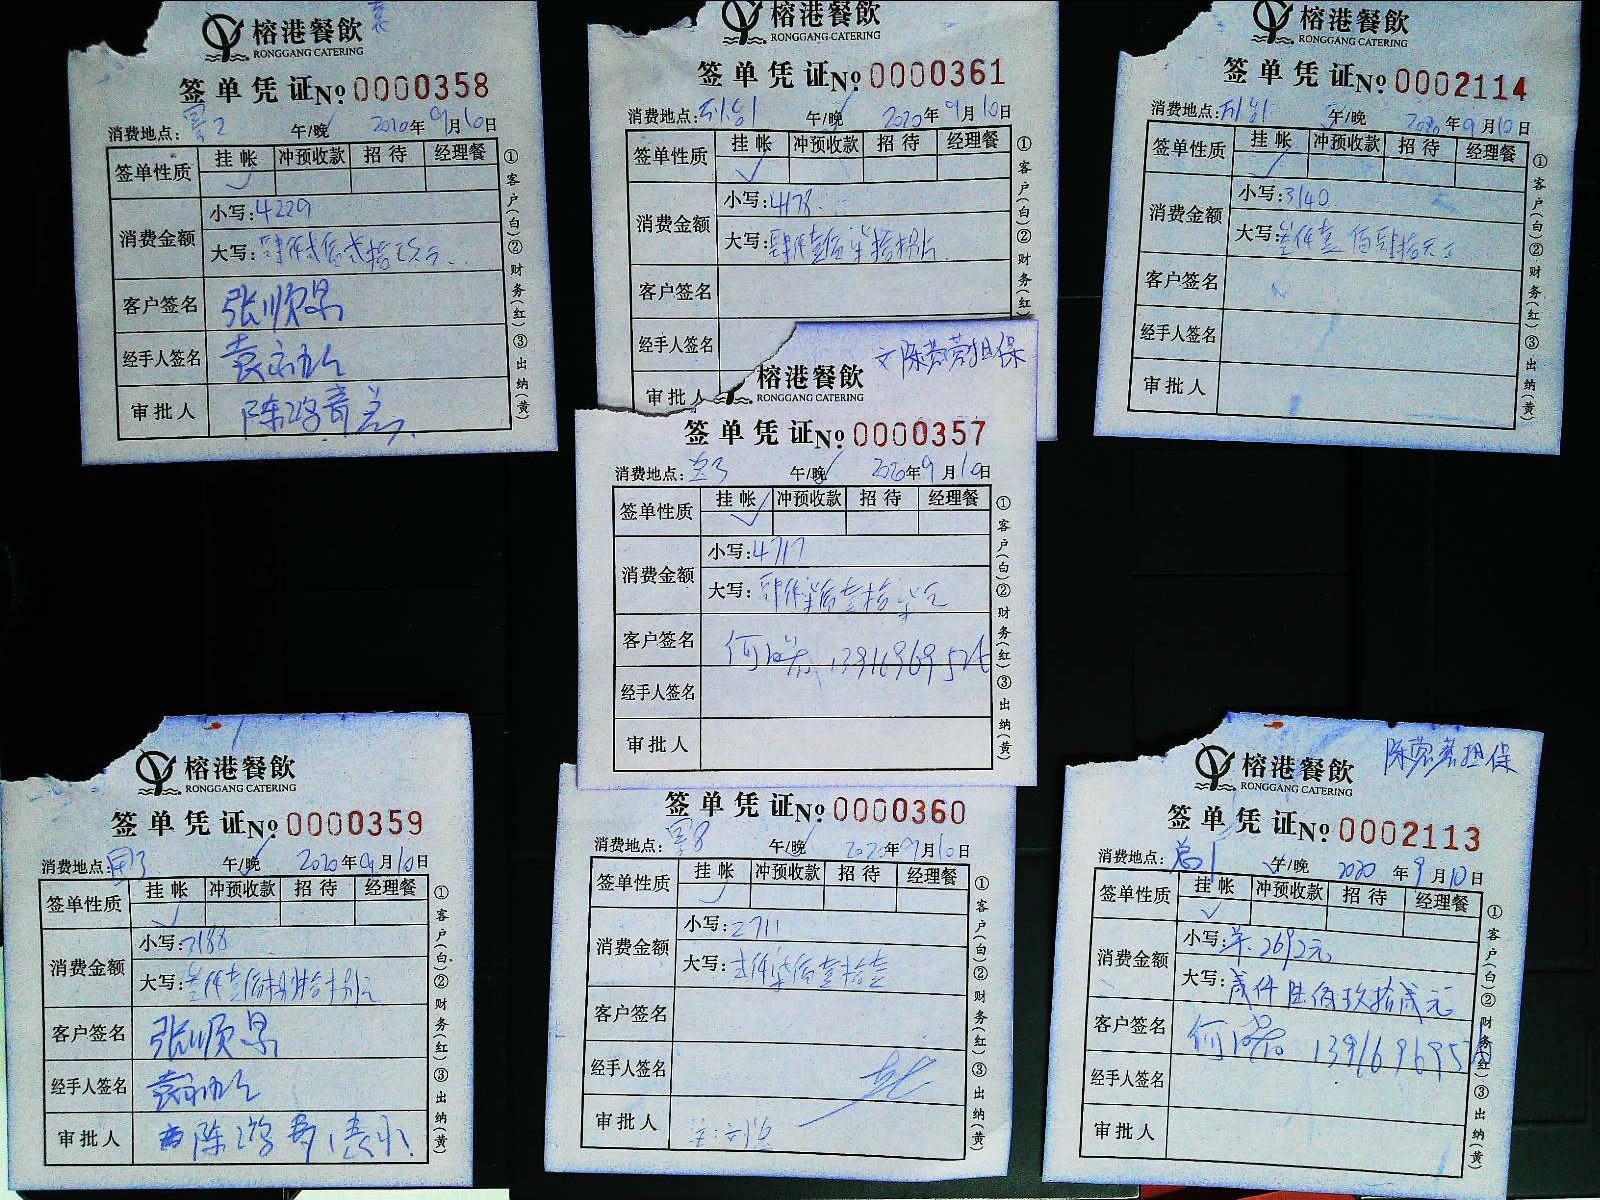 榕港餐飲
RONGGANG CATERING
签单凭证 No 0000358
消费地点: 午/晚 2020年9月10日
签单性质 挂帐 冲预收款 招待 经理餐
消费金额 小写:4229
大写:肆仟贰佰贰拾玖元
客户签名 张顺昌
经手人签名
审批人
①客户(白)②财务(红)③出纳(黄)
榕港餐飲
RONGGANG CATERING
签单凭证 No 0000361
消费地点: 午/晚 2020年9月10日
签单性质 挂帐 冲预收款 招待 经理餐
消费金额 小写:4178
大写:肆仟壹佰柒拾捌元
客户签名
经手人签名
审批人
①客户(白)②财务(红)
榕港餐飲
RONGGANG CATERING
签单凭证 No 0002114
消费地点: 午/晚 2020年9月10日
签单性质 挂帐 冲预收款 招待 经理餐
消费金额 小写:3140
大写:叁仟壹佰肆拾元正
客户签名
经手人签名
审批人
①客户(白)②财务(红)③出纳(黄)
担保
榕港餐飲
RONGGANG CATERING
签单凭证 No 0000357
消费地点: 午/晚 2020年9月10日
签单性质 挂帐 冲预收款 招待 经理餐
消费金额 小写:4717
大写:肆仟柒佰壹拾柒元
客户签名 何
经手人签名
审批人
①客户(白)②财务(红)③出纳(黄)
榕港餐飲
RONGGANG CATERING
签单凭证 No 0000359
消费地点: 午/晚 2020年9月10日
签单性质 挂帐 冲预收款 招待 经理餐
消费金额 小写:3188
大写:叁仟壹佰捌拾捌元
客户签名 张顺昌
经手人签名
审批人
①客户(白)②财务(红)③出纳(黄)
签单凭证 No 0000360
消费地点: 午/晚 2020年9月10日
签单性质 挂帐 冲预收款 招待 经理餐
消费金额 小写:2711
大写:贰仟柒佰壹拾壹
客户签名
经手人签名
审批人
①客户(白)②财务(红)③出纳(黄)
担保
榕港餐飲
RONGGANG CATERING
签单凭证 No 0002113
消费地点: 午/晚 2020年9月10日
签单性质 挂帐 冲预收款 招待 经理餐
消费金额 小写: 2692元
大写:贰仟陆佰玖拾贰元
客户签名 何
经手人签名
审批人
①客户(白)②财务(红)③出纳(黄)